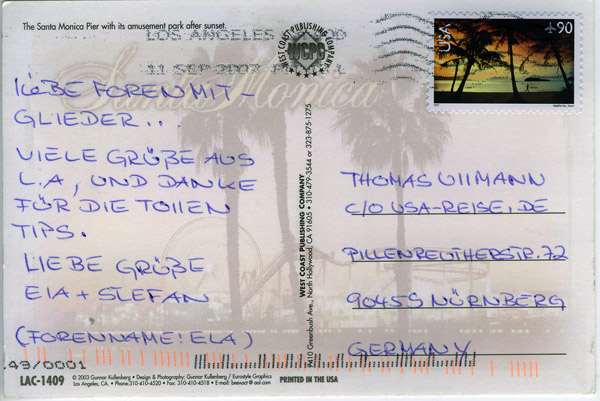 The Santa Monica Pier with its amusement park after sunset.
LOS ANGELES
11 SEP 2007
WEST COAST PUBLISHING COMPANY
WCPC
USA
90
Santa Monica
LIEBE FORENMIT-
GLIEDER..
VIELE GRÜßE AUS
L.A, UND DANKE
FÜR DIE TOLLEN
TIPS.
LIEBE GRÜßE
ELA + STEFAN
(FORENNAME: ELA)
WEST COAST PUBLISHING COMPANY
7410 Greenbush Ave., North Hollywood, CA 91605 • 310-479-3544 or 323-875-1275
THOMAS ULLMANN
C/O USA-REISE.DE
PILLENREUTHERSTR. 72
90459 NÜRNBERG
GERMANY
49/0001
LAC-1409
© 2003 Gunnar Kullenberg • Design & Photography: Gunnar Kullenberg / Eurostyle Graphics
Los Angeles, CA. • Phone:310-410-4520 • Fax: 310-410-4518 • E-mail: beexact @ aol.com
PRINTED IN THE USA